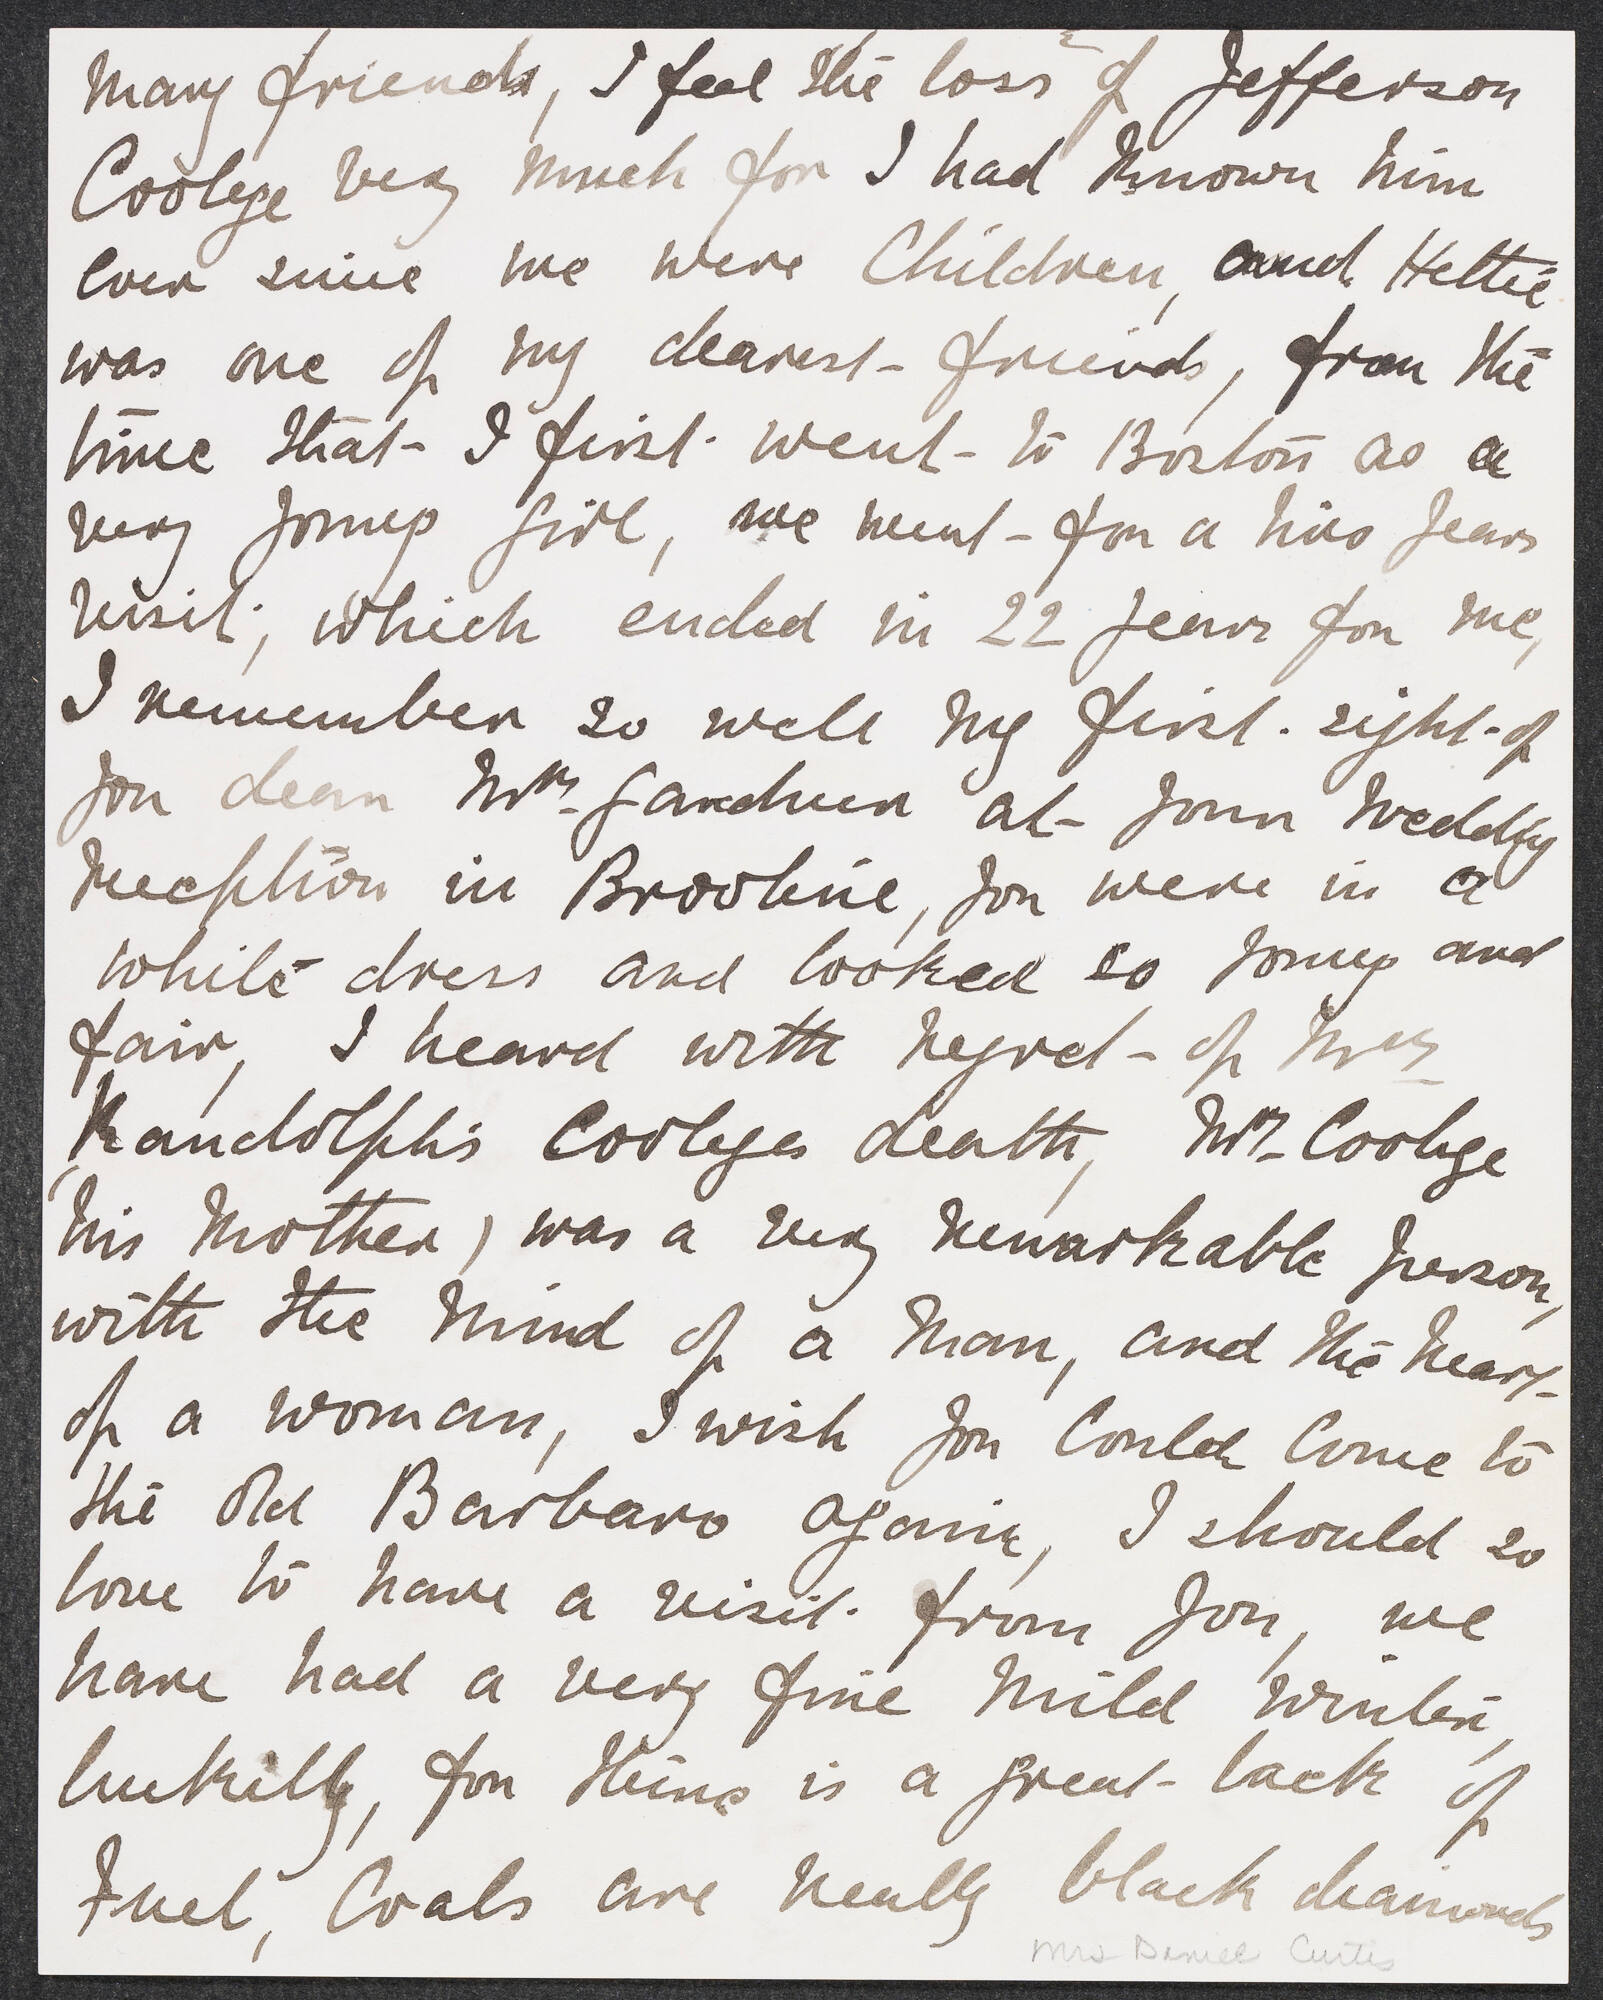 many friends, I feel the loss of Jefferson
Coolidge very much for I had known him
ever since we were Children, and Hettie
was one of my dearest friends, from the
time that I first went to Boston as a
very young girl, we went for a two years
visit, which ended in 22 years for me,
I remember so well my first sight of
you dear Mrs Gardner at your Wedding
reception in Brookline, you were in a
white dress and looked so young and
fair, I heard with regret of Mrs
Randolph's Coolidges death, Mrs Coolidge
(his Mother) was a very remarkable person,
with the Mind of a Man, and the heart
of a woman, I wish you Could Come to
the old Barbaro again, I should so
love to have a visit from you, we
have had a very fine Mild winter,
luckily, for there is a great lack of
Fuel, Coals are really black diamonds
Mrs Daniel Curtis